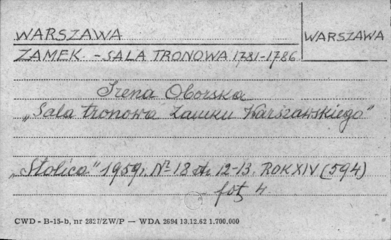 WARSZAWA WARSZAWA
ZAMEK - SALA TRONOWA 1781-1786
Irena Oborska
„Sala tronowa Zamku Warszawskiego"
„Stolica" 1959r. Nr 18 st. 12-13. ROK XIV (594)
fot 4
CWD - B-15-b, nr 2821/ZW/P — WDA 2694 13.12.62 1.700.000